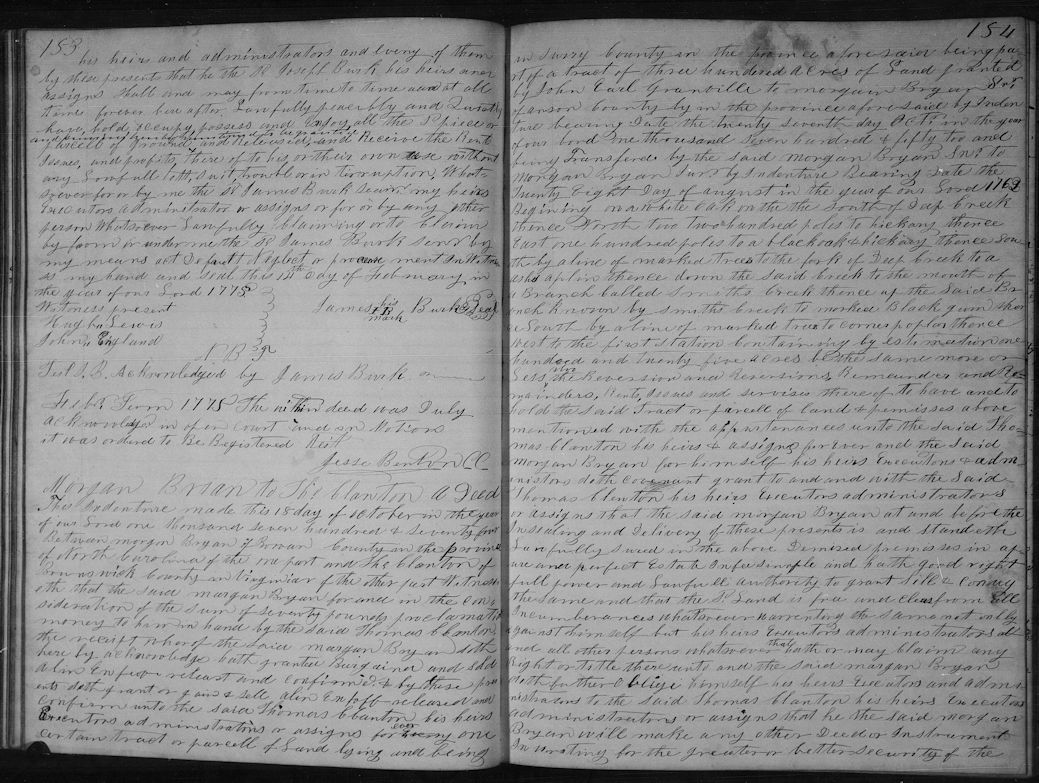 153
his heirs and administrators and Every of them
by these presents that he the Sd Joseph Burk his heirs and
assigns shall and may from time to time and at all
time forever here after Lawfully peaceably and Quietly
have, hold, occupy, possess and Enjoy all the Sd piece or
parcell of Ground and Receive the Rent
Issues, and profits, there of to his or their own use without
any Lawfull Lett, Suit trouble or interruption, What-
soever for or by me the Sd James Burk Senr. my heirs
Executors administrator or assigns or for or by any other
person Whatsoever Lawfully Claiming or to Claim
by from or under me the Sd James Burk Senr by
my means act Default Neglect or procurement In Witne-
ss my hand and seal this 14th Day of February in
the year of our Lord 1775
Witness present
James his IB mark Burk Seal
Hugh Lewis
John England
Test J. B. Acknowledged by James Burk
Febr Term 1775 The within deed was Duly
acknowledged in open Court and on Motions
it was ordred to Be Registered Test
Jesse Benton CC
Morgan Brian to Ths Clanton A Deed
This Indenture made this 18 day of October in the year
of our Lord one thousand Seven hundred & Seventy four
Between morgn Bryan of Rowan County in the province
of North Carolina of the one part and Ths Clanton of
Brunswick County in Virginiar of the other part Witness-
eth that the said margan Bryan for and in the Con-
sideration of the Sum of Seventy pounds proclamation
money to him in hand by the Said Thomas Clanton
the receipt whereof the Said margan Bryan doth
here by acknowledge hath granted Bargained and Sold
alin Enfeoff releast and confirmed & by these pres-
ents doth grant or gain & sell alin Enfoff released and
confirm unto the said Thomas Clanton his heirs
Executors administratirs or assigns for Every one
certain tract or parcell of Land lying and being
154
in Surry County in the province afore said being pa-
rt of a tract of three hundred acres of Land granted
by John Earl Granville to morgan Bryan Snr.
anson County by in the province afore said by Inden-
ture bearing Date the twenty seventh day Octr. in the year
of our Lord one thousand Seven hundred & fifty two and
being transfered by the said Morgan Bryan Snr. to
Morgan Bryan Junr by Indenture Bearing Date the
Twenty Eight Day of august in the year of our Lord 1763
Begining on a white oak on the the South of Deep Creek
thence North two two hundred poles to hickory thence
East one hundred poles to a black oak & hickory thence Sou-
th by a line of marked trees to the fork of Deep Creek to a
thence down the Said creek to the mouth of
a Branch Called Smiths Creek thence up the Said Br-
anch known by smiths creek to marked Black gum then-
ce South by a line of marked trees to corner poplar thence
West to the first station containing by estimation one
hundred and twenty five acres be the same more or
Less the Reversion and reversions, Remainder and Re-
mainders, Rents, Issues and services thereof to have and to
hold the said Tract or parcell of land & premisses above
mentioned with the appurtenances unto the said Tho-
mas Clanton his heirs & assigns forever and the said
morgan Bryan for himself his heirs Executors & adm-
inistors doth covenant grant to and with the Said
Thomas Clanton his heirs Executors administrators
or assigns that the said morgan Bryan at and before the
Insealing and Delivery of these presents is and standeth
Lawfully seized in the above Demised premisses in a p-
ure and perfect Estate In fee simple and hath good right
full power and Lawfull authority to grant Sell & Convey
the same and that the Sd Land is free and clear from all
Incumberances whatsoever warrenting the same not only
against himself but his heirs Executors administrators all
and all other persons whatsoever that hath or may claim any
Right or title there unto and the said margan Bryan
doth further Oblige himself his heirs Executors and admi-
nistrators to the said Thomas Clanton his heirs Executors
administrators or assigns that he the said morgan
Bryan will make any other Deed or Instrument
In writing for the greater or better security of the